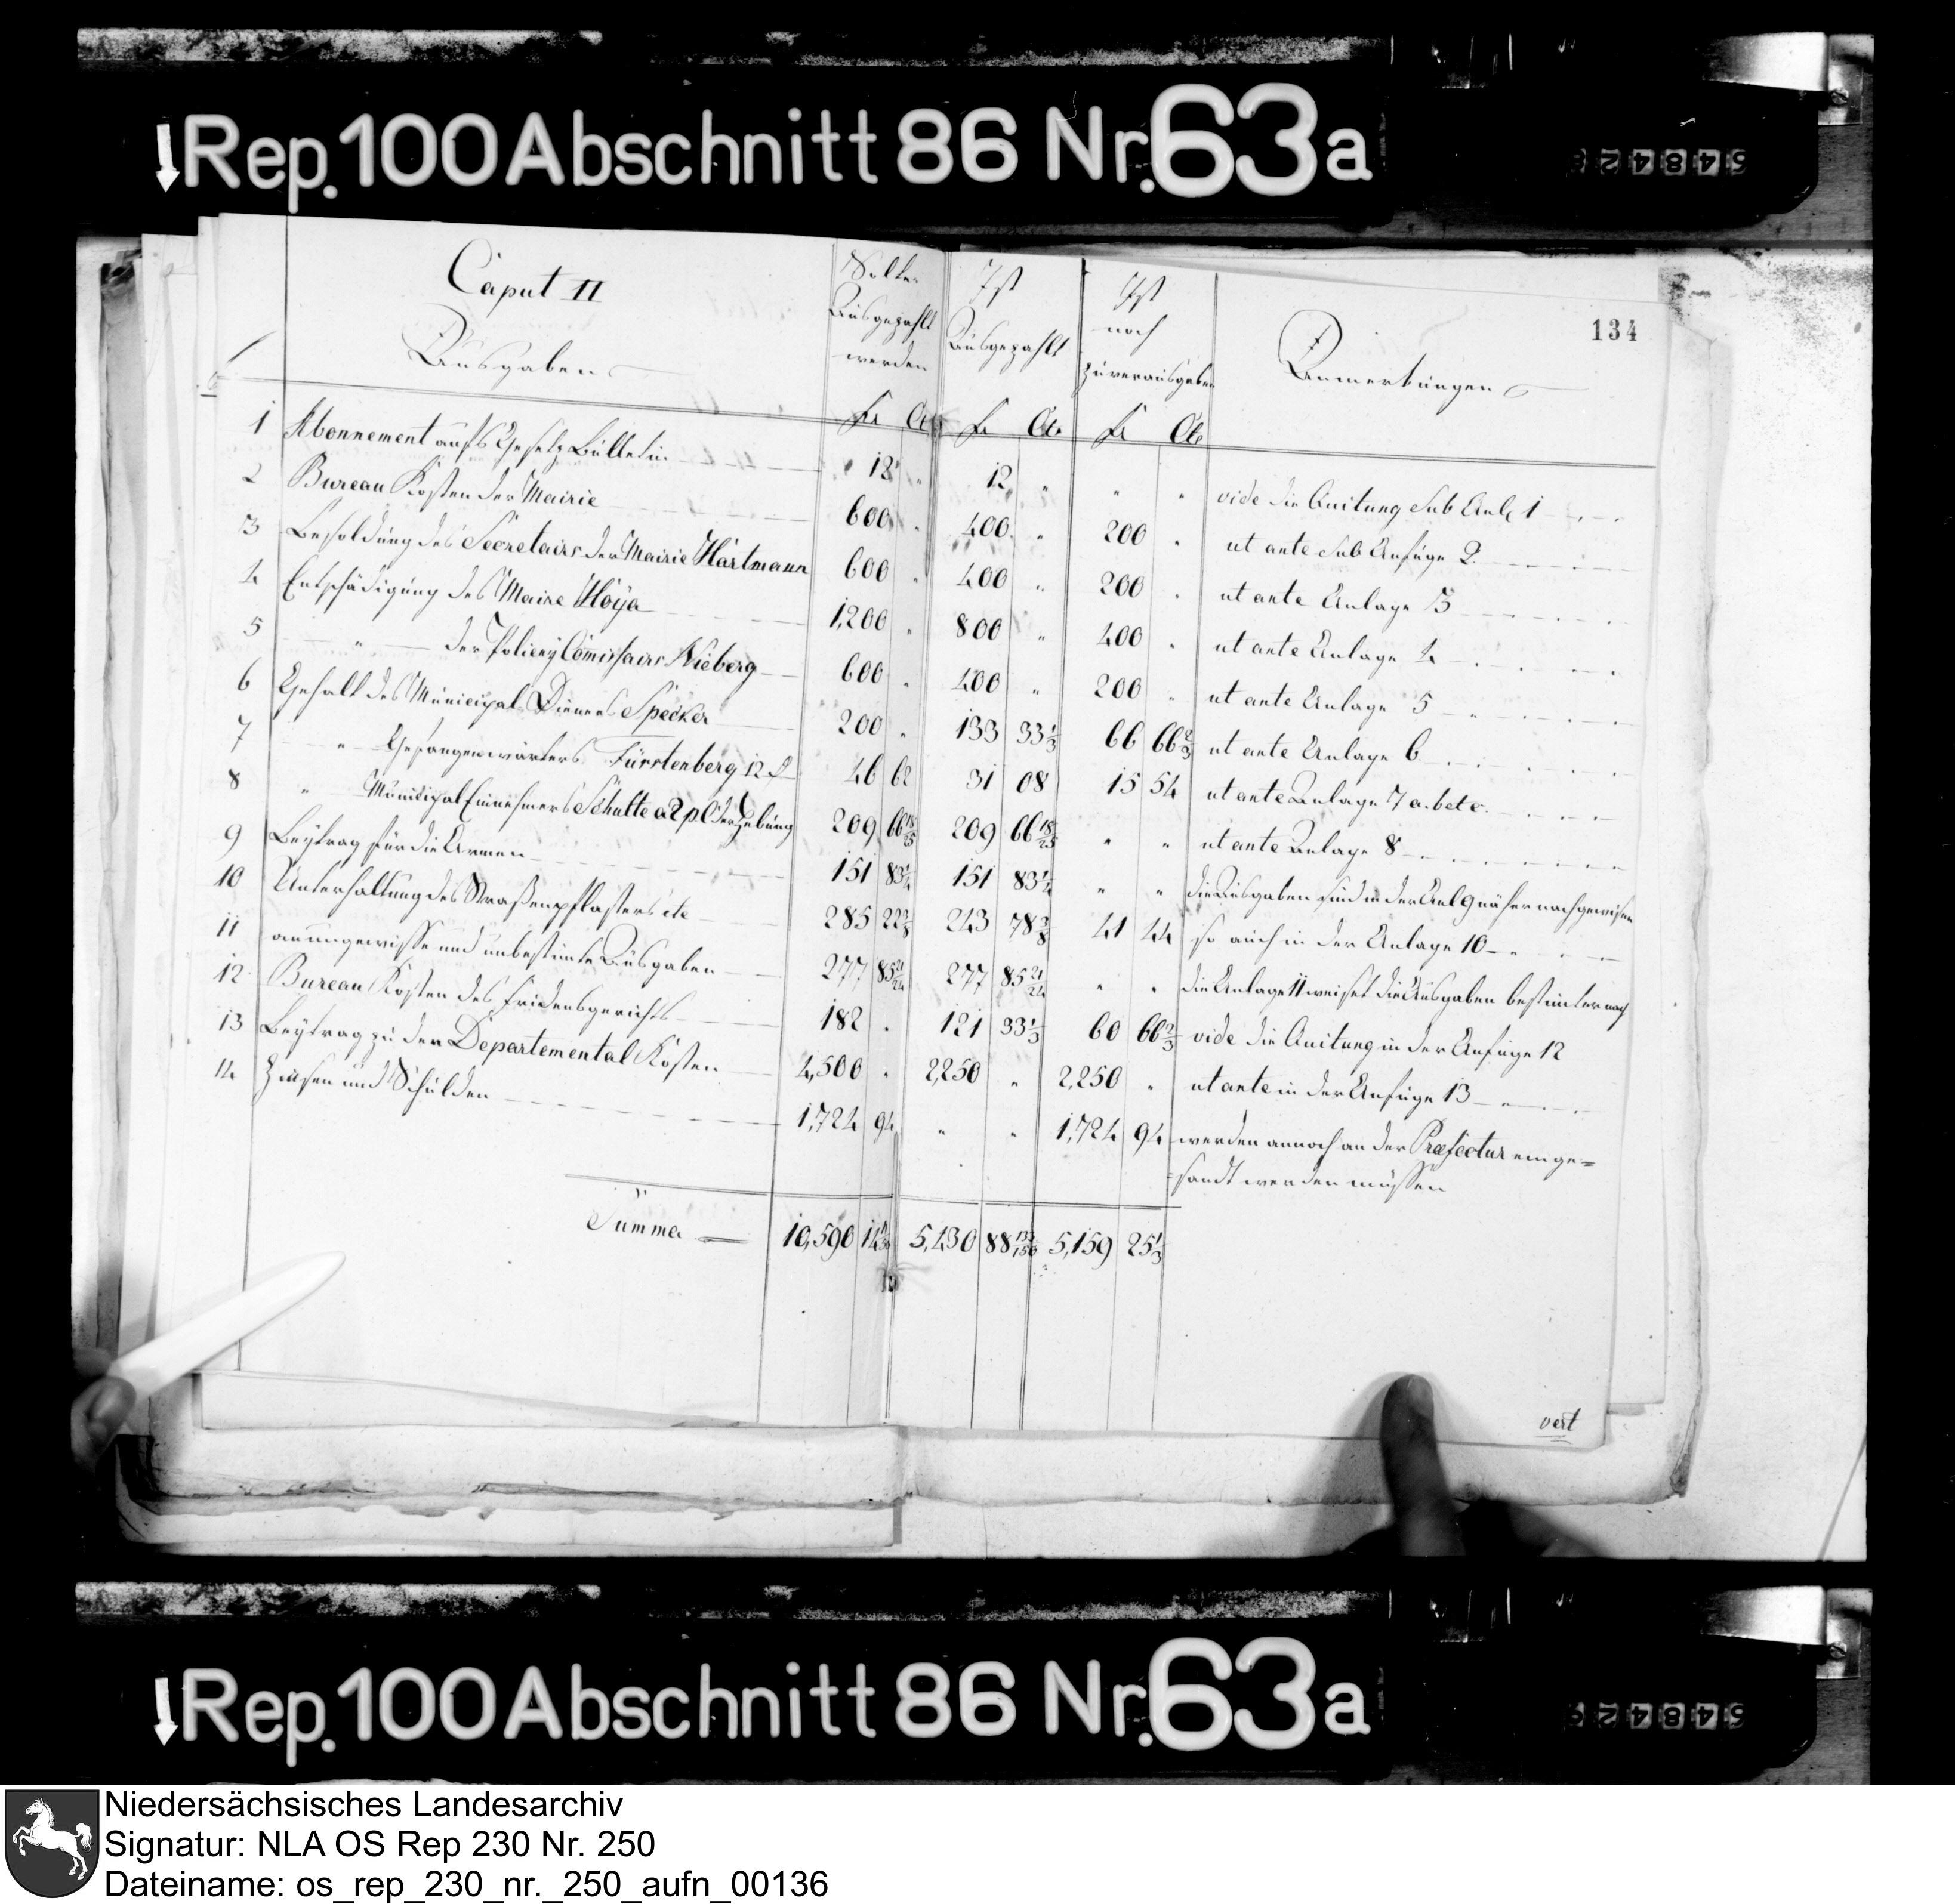 Rep. 100 Abschnitt 86 Nr. 63a
54842
Caput II
Ausgaben
Sollen Ausgezahlt werden
Ist Ausgezahlt
Ist noch zu verausgaben
Anmerkungen
134
Fr Ct Fr Ct Fr Ct
1 Abonnement aufs Gesetz Bülletin 12 " 12 " " " vide die Quitung sub Anl. 1
2 Bureau Kosten der Mairie 600 " 400 " 200 " ut ante sub Anfuge 2
3 Besoldung des Secretairs der Mairie Hartmann 600 " 400 " 200 " ut ante Anlage 3
4 Entschädigung des Maire Hoya 1,200 " 800 " 400 " ut ante Anlage 4
5 " der Policey Comissairs Nieberg 600 " 400 " 200 " ut ante Anlage 5
6 Gehalt des Municipal Dieners Specker 200 " 133 33 1/3 66 66 2/3 ut ante Anlage 6
7 " Gefangenwärters Fürstenberg 12 46 62 31 08 15 54 ut ante Anlage 7 a. b et c.
8 " Municipal Einnehmers Schulte a 2 p C der Hebung 209 66 18/25 209 66 18/25 " " ut ante Anlage 8
9 Beytrag für die Armen 151 83 1/4 151 83 1/4 " " die Ausgaben sind in der Anl 9 näher nachgewisen
10 Unterhaltung des Straßenpflasters etc 285 22 3/8 243 78 3/8 41 44 so auch in der Anlage 10
11 an ungewisse und unbestimte Ausgaben 277 85 21/24 277 85 21/24 " " die Anlage 11 weiset die Ausgaben bestimter nach
12 Bureau Kosten des Fridensgerichts 182 " 121 33 1/3 60 66 2/3 vide die Quitung in der Anfuge 12
13 Beytrag zu den Departemental Kosten 4,500 " 2,250 " 2,250 " ut ante in der Anfuge 13
14 Zinsen und Schulden 1,724 94 " " 1,724 94 werden annoch an der Præfectur einge=
=sandt werden müssen
Summa 10,590 14 5,430 88 133/150 5,159 25 1/3
vert
Rep. 100 Abschnitt 86 Nr. 63a
54842
Niedersächsisches Landesarchiv
Signatur: NLA OS Rep 230 Nr. 250
Dateiname: os_rep_230_nr._250_aufn_00136